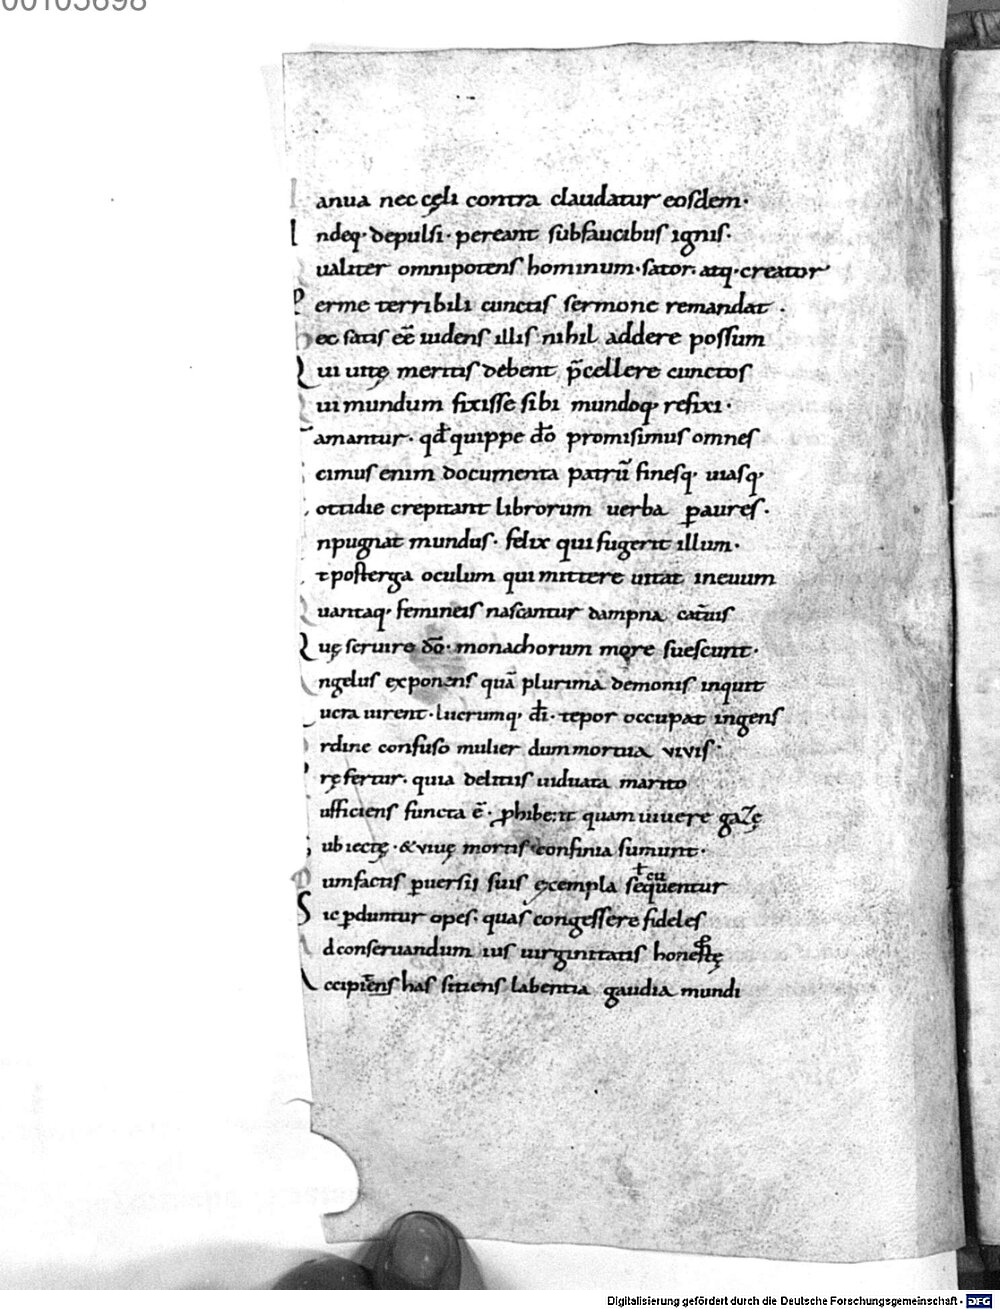 00105698
I anua nec cęli contra claudatur eosdem·
I ndeq· depulsi· pereant subfaucibus ignis·
ualiter omnipotens hominum· sator· atq· creator
P erme terribili cunctis sermone remandat·
h ec satis eē uidens illis nihil addere possum
Q ui uitę meritis debent p̄cellere cunctos
Q ui mundum fixisse sibi mundoq· refixi·
amantur· qđ quippe dō promisimus omnes
cimus enim documenta patrū finesq· uiasq·
ottidie crepitant librorum uerba paures·
npugnat mundus· felix qui fugerit illum·
t posterga oculum qui mittere uitat ineuum
uantaq· femineis nascantur dampna cat̄uis
Q uę seruire dō· monachorum more suescunt·
ngelus exponens quā plurima demonis inquit
ucra uirent· lucrumq· dī· tepor occupat ingens
rdine confuso mulier dum mortua vivis·
ręfertur· quia delitiis uiduata marito
ufficiens functa ē· phibetit quam uiuere gazę
ubiectę· & viuę mortis confinia sumunt·
D umfactis puersis suis exempla sequentur
ł cu
S ic pduntur opes· quas congessere fideles
A dconseruandum ius uirginitatis honestę
A ccipiens has sitiens labentia gaudia mundi
Digitalisierung gefördert durch die Deutsche Forschungsgemeinschaft - DFG